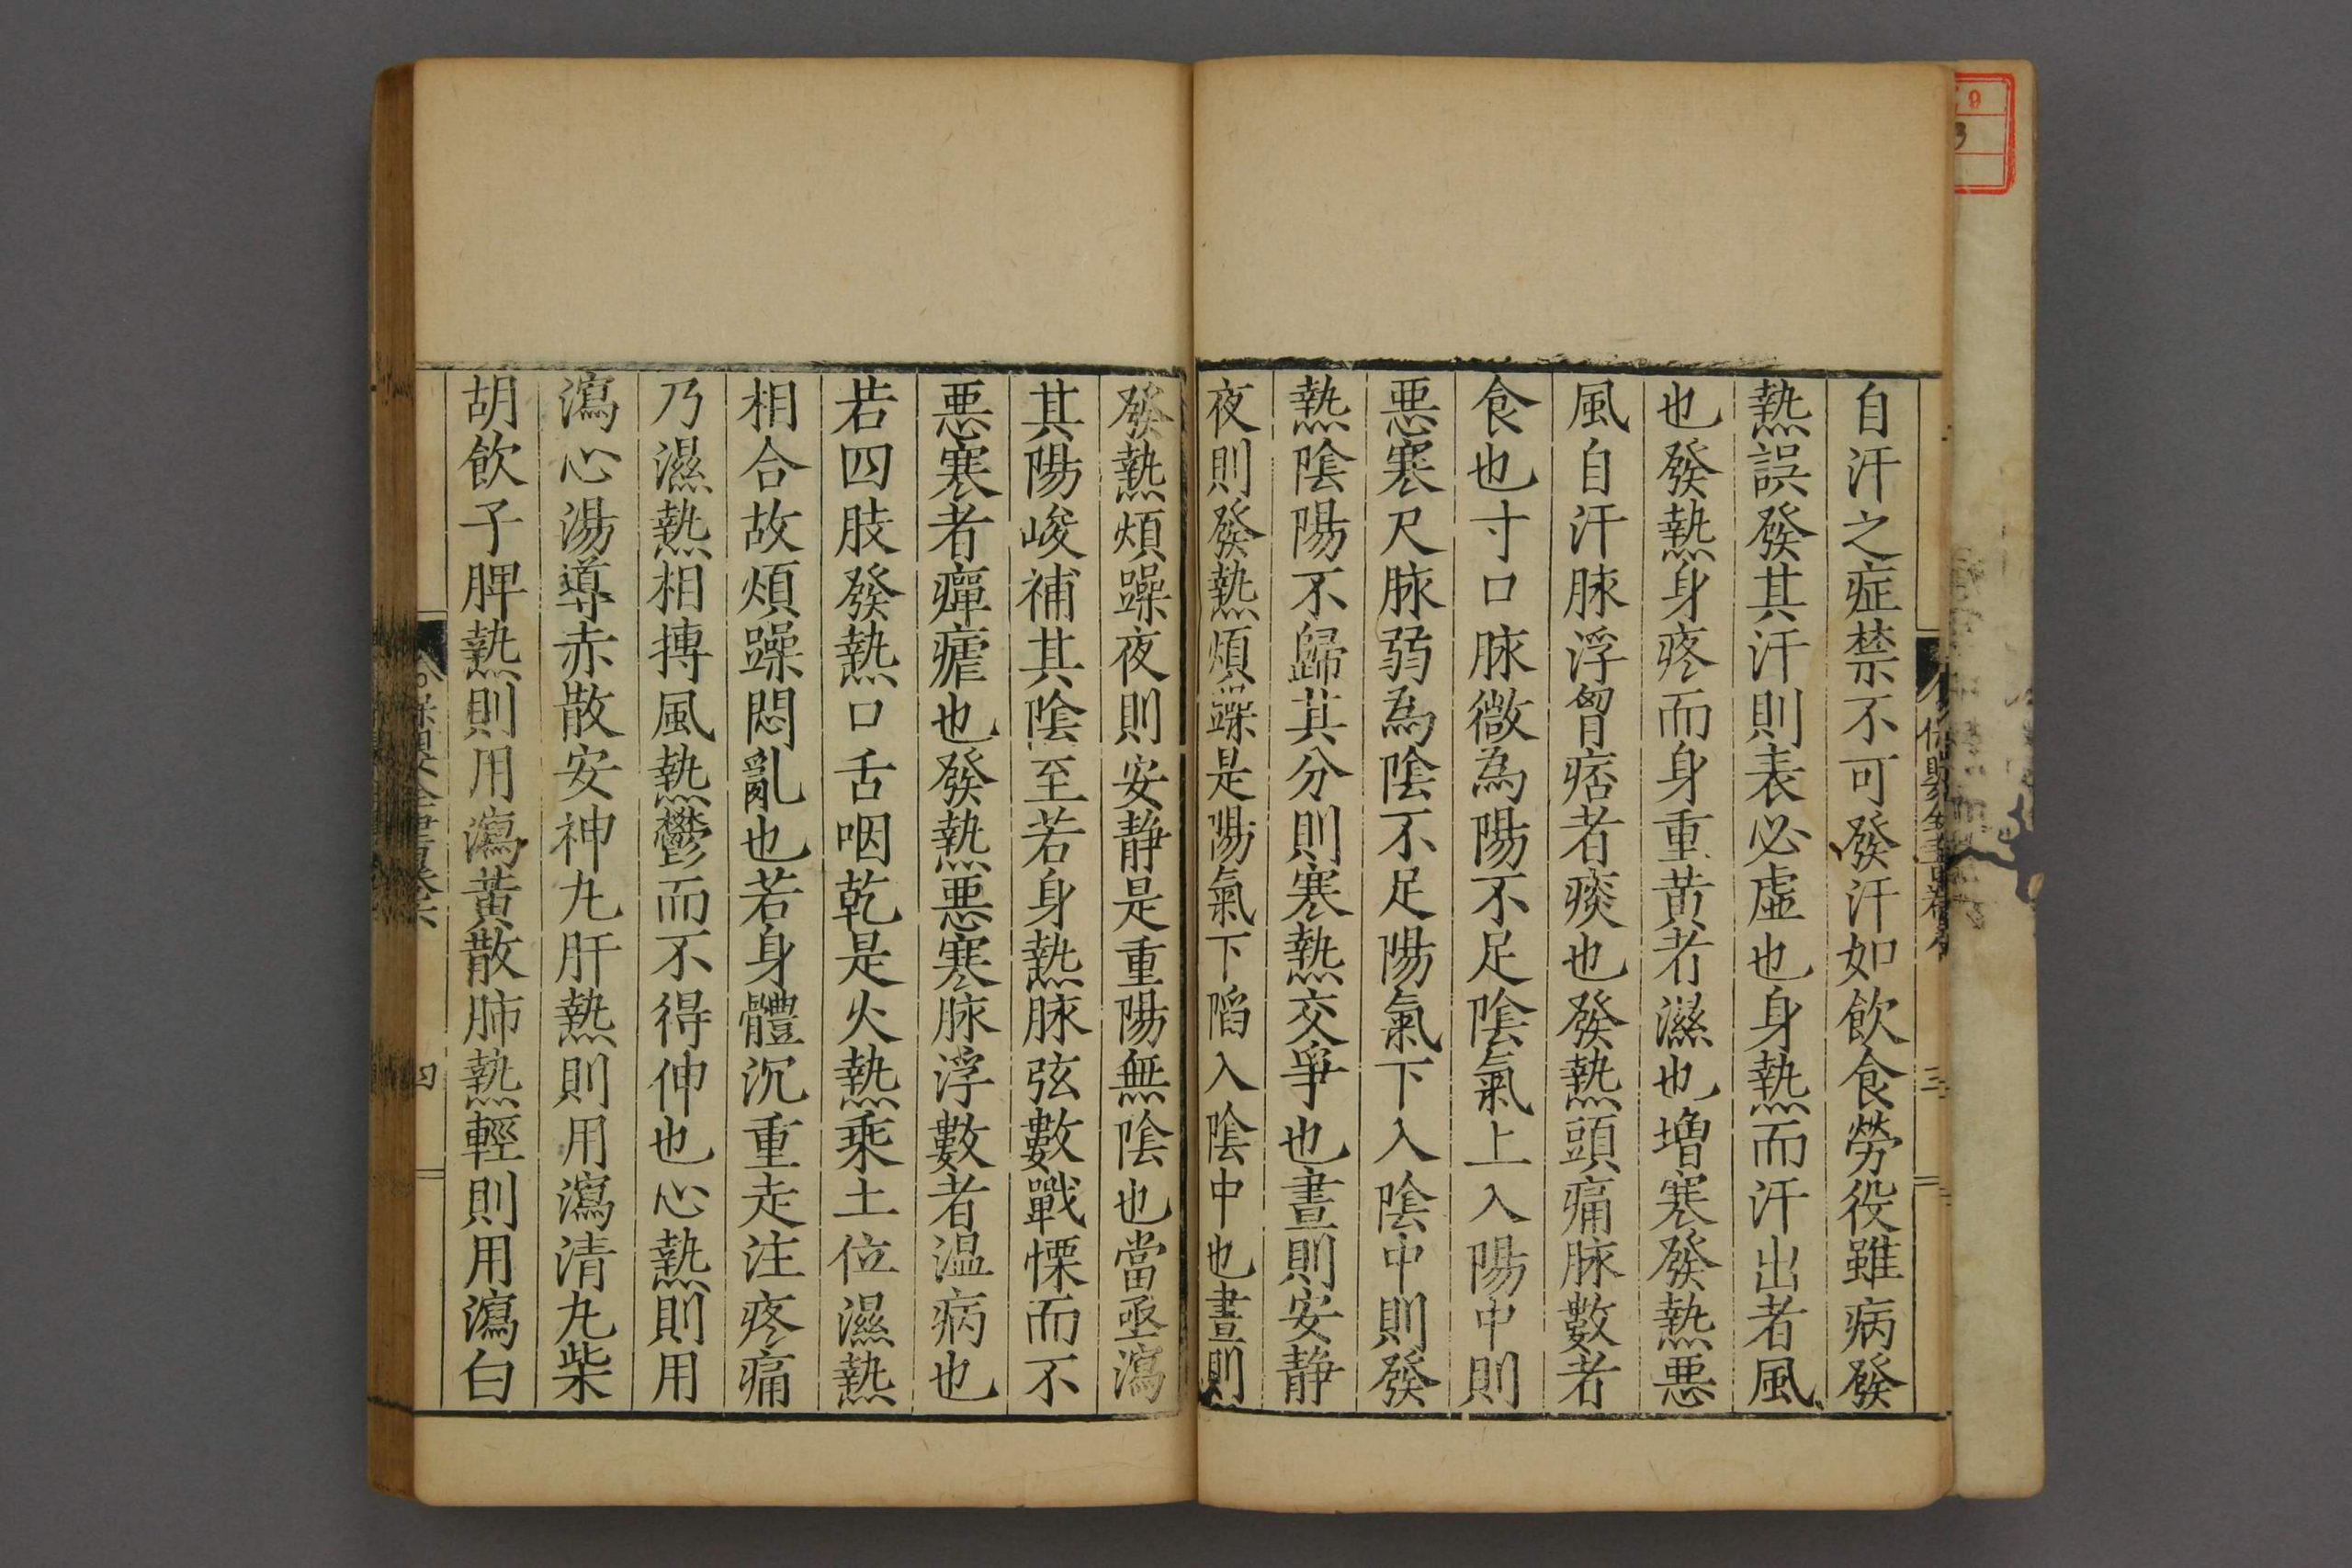 自汗之症禁不可發汗如飲食勞役雖病發
熱誤發其汗則表必虛也身熱而汗出者風
也發熱身疼而身重黃者濕也增寒發熱惡
風自汗脉浮胷痞者痰也發熱頭痛脉數者
食也寸口脉微為陽不足陰氣上入陽中則
惡寒尺脉弱為陰不足陽氣下入陰中則發
熱陰陽不歸其分則寒熱交爭也晝則安靜
夜則發熱煩躁是陽氣下陷入陰中也晝則
發熱煩躁夜則安靜是重陽無陰也當亟瀉
其陽峻補其陰至若身熱脉弦數戰慄而不
惡寒者癉瘧也發熱惡寒脉浮數者温病也
若四肢發熱口舌咽乾是火熱乘土位濕熱
相合故煩躁悶亂也若身體沉重走注疼痛
乃濕熱相搏風熱鬱而不得伸也心熱則用
瀉心湯導赤散安神丸肝熱則用瀉清丸柴
胡飲子脾熱則用瀉黃散肺熱輕則用瀉白
三
四